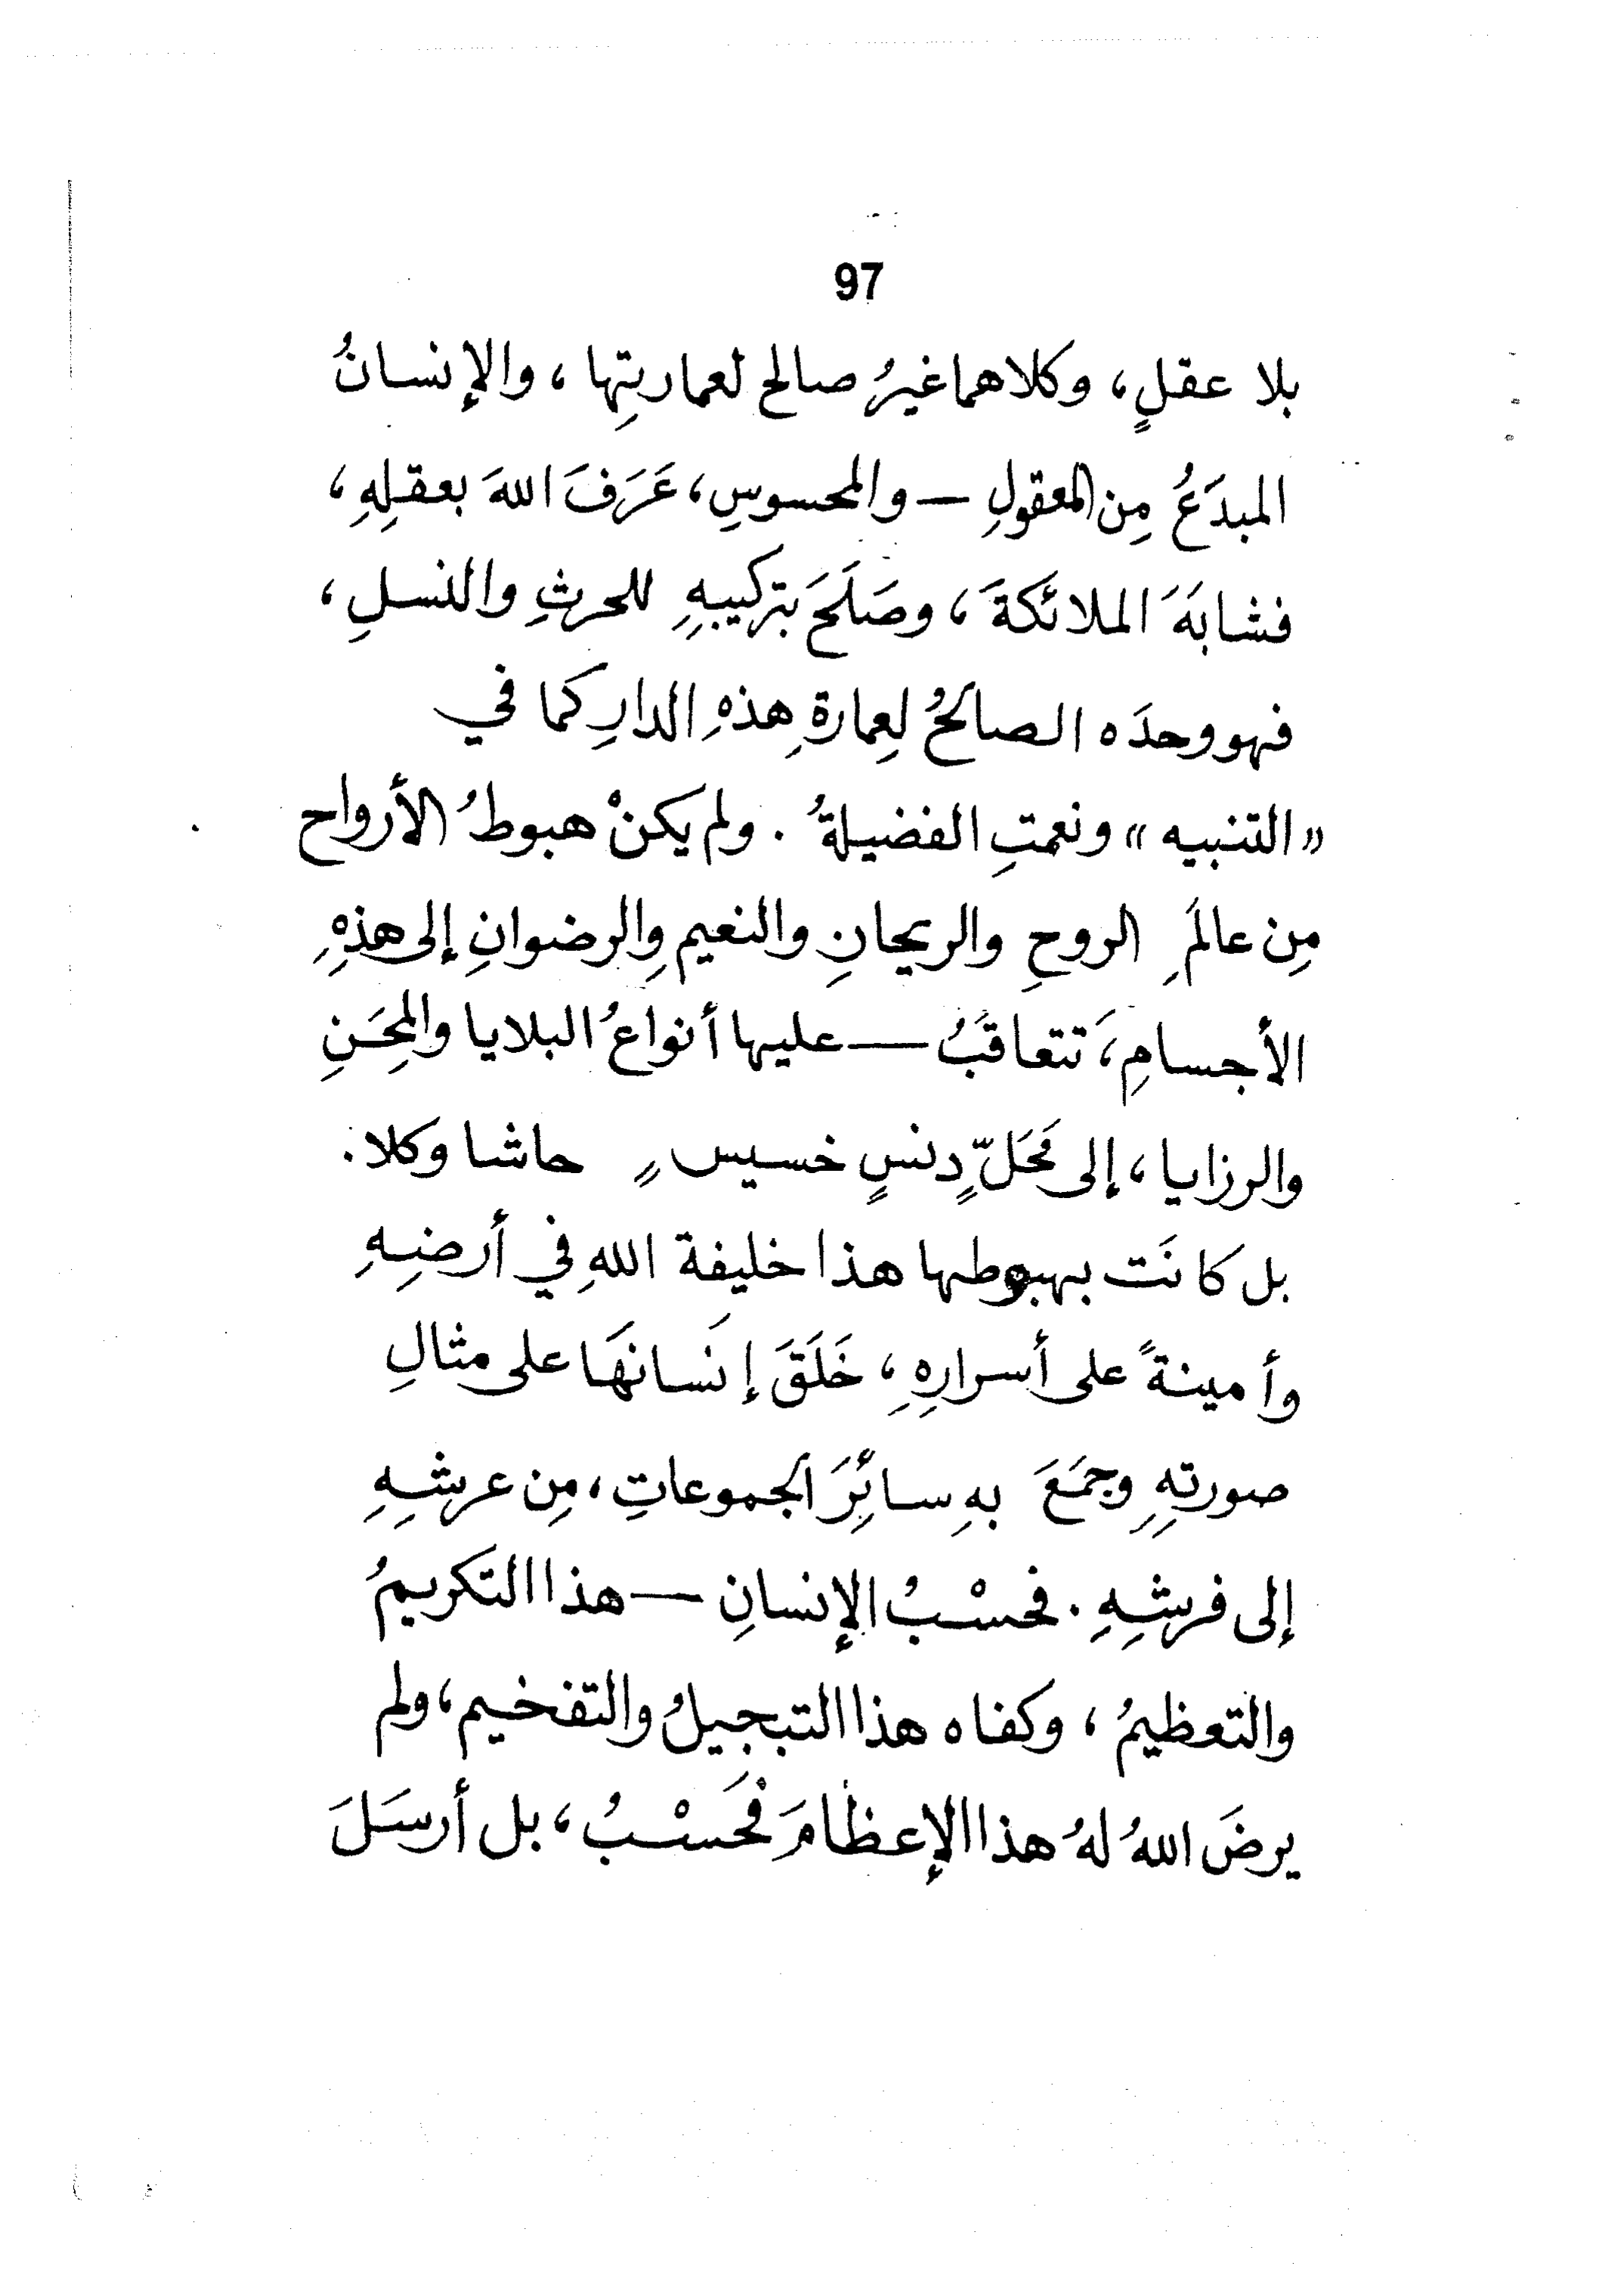 97
بلا عقلٍ، وكلاهما غيرُ صالح لعمارتِها، والإنسانُ
المبدَعُ مِن المعقولِ — والمحسوسِ، عَرَفَ اللهَ بعقلِهِ،
فشابَهَ الملائكةَ، وصَلَحَ بتركيبِهِ للحرثِ والنسلِ،
فهو وحدَه الصالحُ لِعمارةِ هذهِ الدارِ كما في
«التنبيه» ونعمتِ الفضيلةُ. ولم يكنْ هبوطُ الأرواح
مِن عالَمِ الروحِ والريحانِ والنعيمِ والرضوانِ إلى هذِهِ
الأجسامِ، تَتعاقَبُ — عليها أنواعُ البلايا والمِحَنِ
والرزايا، إلى مَحَلٍّ دنسٍ خسيسٍ حاشا وكلا.
بل كانَت بهبوطها هذا خليفةَ اللهِ في أرضِهِ
وأمينةً على أسرارِهِ، خَلَقَ إنسانَهَا على مثالِ
صورتِهِ وجمَعَ بهِ سائِرَ المجموعاتِ، مِن عرشِهِ
إلى فرشِهِ. فحسْبُ الإنسانِ — هذا التكريمُ
والتعظيمُ، وكفاه هذا التبجيلُ والتفخيم، ولم
يرضَ اللهُ لهُ هذا الإعظامَ فَحَسْبُ، بل أرسَلَ